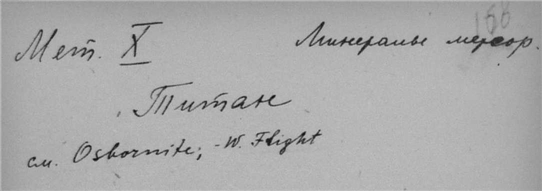 168
Мет. X Минералы метеор.
Титан
см. Osbornite; - W. Flight